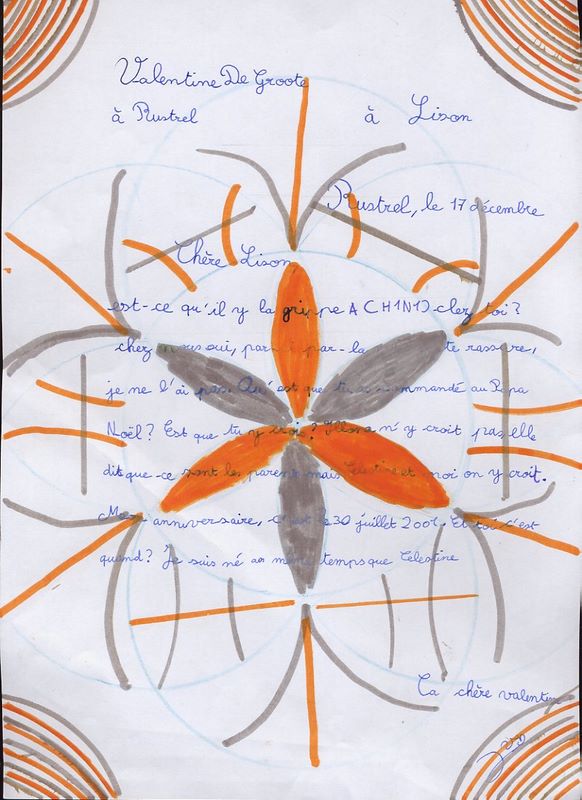 Valentine De Groote
à Rustrel à Lison
Rustrel, le 17 décembre
Chère Lison
est-ce qu'il y la grippe A (H1N1) chez toi?
chez nous oui, par-ci par-la te rassure,
je ne l'ai pas. Qu'est que tu as commandé au Papa
Noël? Est que tu y crois? Illona n'y croit pas elle
dit que-ce sont les parents mais Célestine et moi on y croit.
Mon anniversaire, c'est le 30 juillet 2001. Et toi c'est
quand? Je suis né au même temps que Célestine
Ta chère valentine